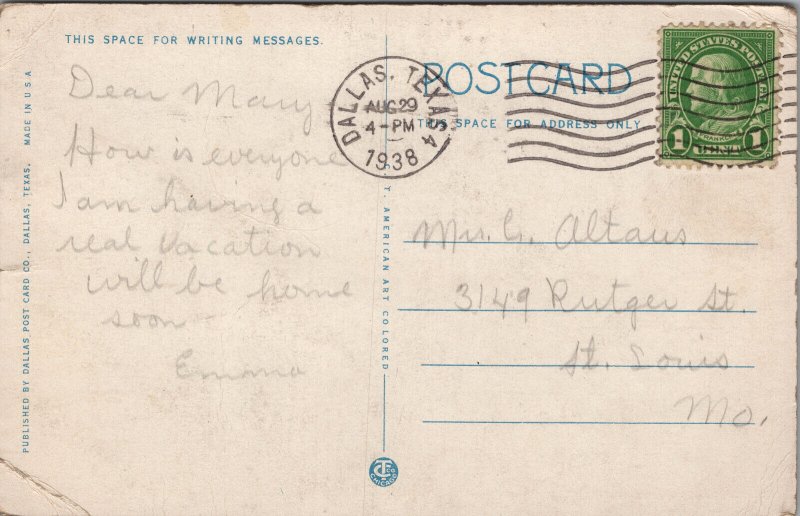 THIS SPACE FOR WRITING MESSAGES.
Dear Mary
How is everyone
I am having a
real vacation
will be home
soon
Emma
POST CARD
THIS SPACE FOR ADDRESS ONLY
DALLAS, TEXAS
AUG 29
4-PM
1938
4
UNITED STATES POSTAGE
FRANKLIN
1 CENT 1
Mrs. G. Altaus
3149 Rutger St.
St. Louis
Mo.
C. T. AMERICAN ART COLORED
CT CO
CHICAGO
PUBLISHED BY DALLAS POST CARD CO., DALLAS, TEXAS. MADE IN U.S.A